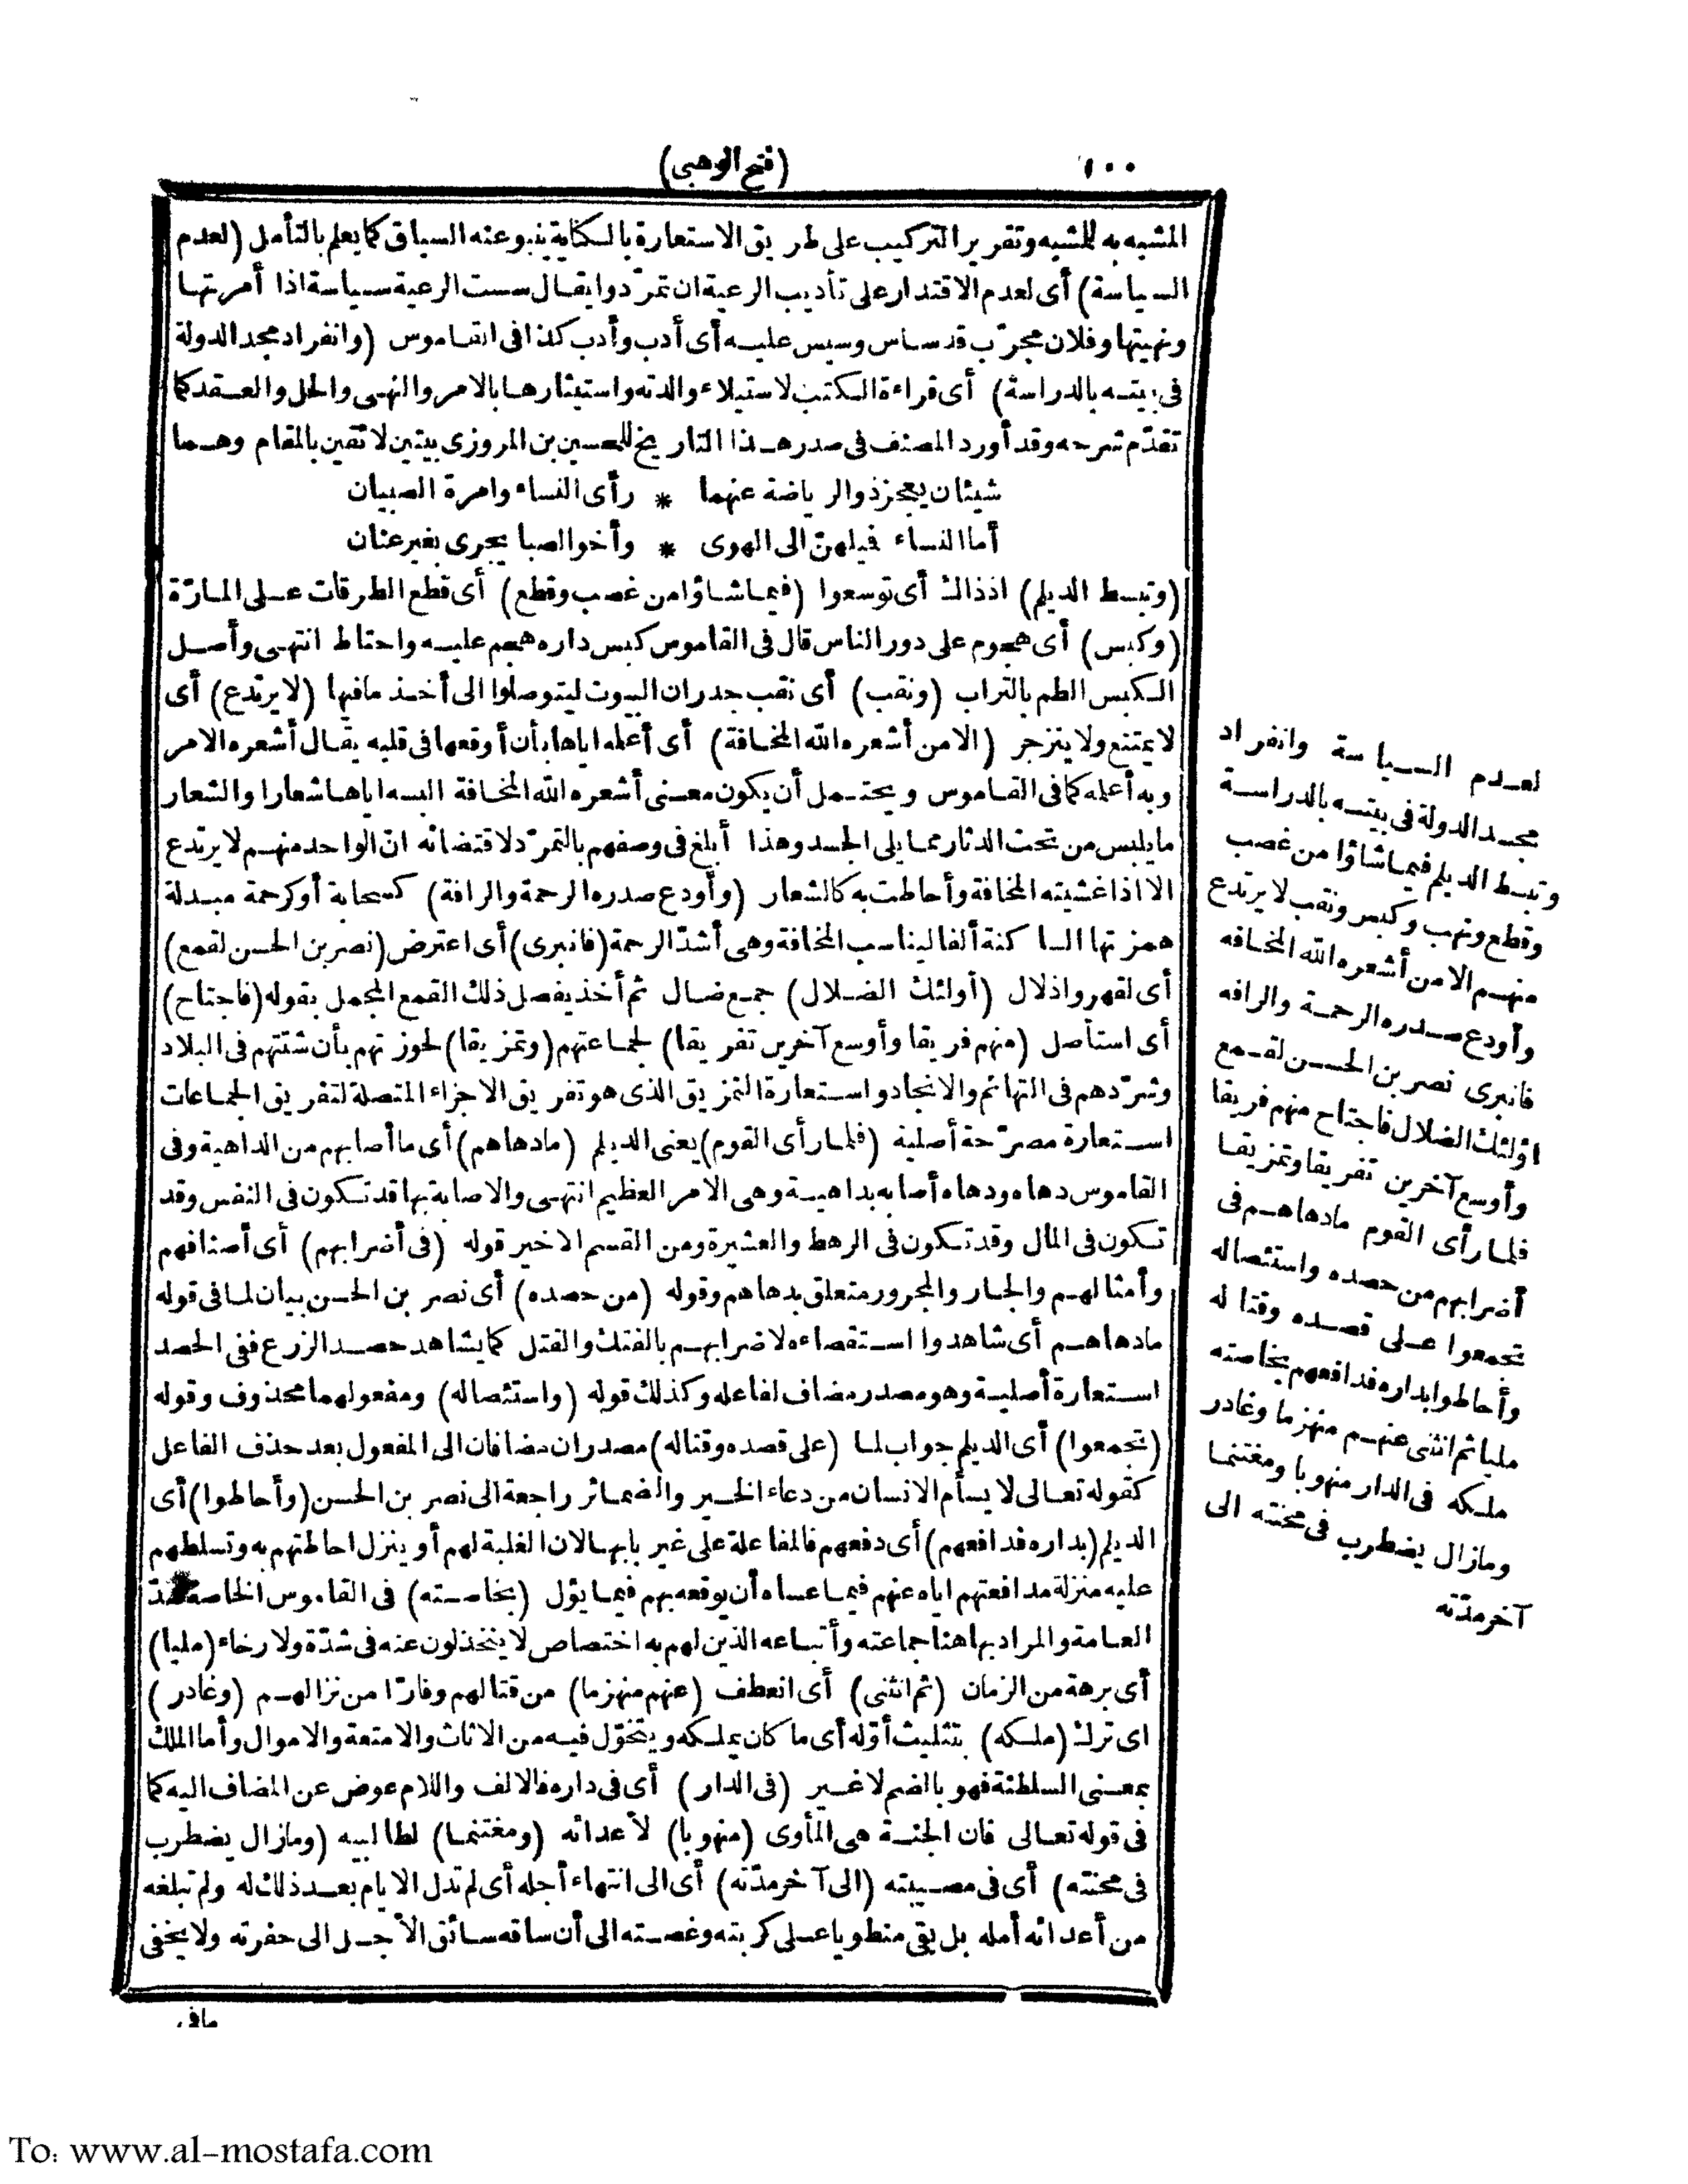 ١٠٠
(فتح الوهبى)
المشبه به للمشبه وتقرير التركيب على طريق الاستعارة بالكناية ينبو عنه السياق كما يعلم بالتأمل (لعدم
السياسة) أى لعدم الاقتدار على تأديب الرعية ان تمرّدوا يقال سست الرعية سياسة اذا أمرتها
ونهيتها وفلان مجرّب قد ساس وسيس عليه أى أدب وأدب كذا فى القاموس (وانفراد مجد الدولة
فى بيته بالدراسة) أى قراءة الكتب لاستيلاء والدته واستيثارها بالامر والنهى والحل والعقد كما
تقدّم شرحه وقد أورد المصنف فى صدر هذا التاريخ للحسين بن المروزى بيتين لائقين بالمقام وهما
شيئان يعجز ذو الرياضة عنهما * رأى النساء وامرة الصبيان
أما النساء فميلهنّ الى الهوى * وأخو الصبا يجرى بغير عنان
(وتبسط الديلم) اذ ذاك أى توسعوا (فيما شاؤا من غصب وقطع) أى قطع الطرقات على المارّة
(وكبس) أى هجوم على دور الناس قال فى القاموس كبس داره هجم عليه واحتاط انتهى وأصل
الكبس الطم بالتراب (ونقب) أى نقب جدران البيوت ليتوصلوا الى أخذ ما فيها (لا يرتدع) أى
لا يمتنع ولا ينزجر (الا من أشعره الله المخافة) أى أعلمه اياها بأن أوقعها فى قلبه يقال أشعره الامر
وبه أعلمه كما فى القاموس ويحتمل أن يكون معنى أشعره الله المخافة البسه اياها شعارا والشعار
ما يلبس من تحت الدثار مما يلى الجسد وهذا أبلغ فى وصفهم بالتمرّد لاقتضائه انّ الواحد منهم لا يرتدع
الا اذا غشيته المخافة وأحاطت به كالشعار (وأودع صدره الرحمة والرافة) كسحابة أو كرحمة مبدلة
همزتها الساكنة ألفا ليناسب المخافة وهى أشدّ الرحمة (فانبرى) أى اعترض (نصر بن الحسن لقمع)
أى لقهر واذلال (أولئك الضلال) جمع ضال ثم أخذ يفصل ذلك القمع المجمل بقوله (فاجتاح)
أى استأصل (منهم فريقا وأوسع آخرين تفريقا) لجماعتهم (وتمزيقا) لحوزتهم بأن شتتهم فى البلاد
وشرّدهم فى التهائم والانجاد واستعارة التمزيق الذى هو تفريق الاجزاء المتصلة لتفريق الجماعات
استعارة مصرّحة أصلية (فلما رأى القوم) يعنى الديلم (مادهاهم) أى ما أصابهم من الداهية وفى
القاموس دهاه ودهاه أصابه بداهية وهى الامر العظيم انتهى والاصابة بها قد تكون فى النفس وقد
تكون فى المال وقد تكون فى الرهط والعشيرة ومن القسم الاخير قوله (فى أضرابهم) أى أصنافهم
وأمثالهم والجار والمجرور متعلق بدهاهم وقوله (من حصده) أى نصر بن الحسن بيان لما فى قوله
مادهاهم أى شاهدوا استقصاءه لاضرابهم بالفتك والقتل كما يشاهد حصد الزرع ففى الحصد
استعارة أصلية وهو مصدر مضاف لفاعله وكذلك قوله (واستئصاله) ومفعولهما محذوف وقوله
(تجمعوا) أى الديلم جواب لما (على قصده وقتاله) مصدران مضافان الى المفعول بعد حذف الفاعل
كقوله تعالى لا يسأم الانسان من دعاء الخير والضمائر راجعة الى نصر بن الحسن (وأحاطوا) أى
الديلم (بداره فدافعهم) أى دفعهم فالمفاعلة على غير بابها لان الغلبة لهم أو ينزل احاطتهم به وتسلطهم
عليه منزلة مدافعتهم اياه عنهم فيما عساه أن يوقعه بهم فيما يؤل (بخاصته) فى القاموس الخاصة ضدّ
العامة والمراد بها هنا جماعته وأتباعه الذين لهم به اختصاص لا ينخذلون عنه فى شدّة ولا رخاء (مليا)
أى برهة من الزمان (ثم انثنى) أى انعطف (عنهم منهزما) من قتالهم وفارّا من نزالهم (وغادر)
اى ترك (ملكه) بتثليث أوّله أى ما كان يملكه ويتخوّل فيه من الاثاث والامتعة والاموال وأما الملك
بمعنى السلطنة فهو بالضم لا غير (فى الدار) أى فى داره فالالف واللام عوض عن المضاف اليه كما
فى قوله تعالى فان الجنة هى المأوى (منهوبا) لأعدائه (ومغتنما) لطالبيه (ومازال يضطرب
فى محنته) أى فى مصيبته (الى آخر مدّته) أى الى انتهاء أجله أى لم تدل الايام بعد ذلك له ولم تبلغه
من أعدائه أمله بل بقى منطويا على كربته وغصته الى أن ساقه سائق الأجل الى حفرته ولا يخفى
مافى
لعدم السياسة وانفراد
مجد الدولة فى بيته بالدراسة
وتبسط الديلم فيما شاؤا من غصب
وقطع ونهب وكبس ونقب لا يرتدع
منهم الا من أشعره الله المخافه
وأودع صدره الرحمة والرافه
فانبرى نصر بن الحسن لقمع
اولئك الضلال فاجتاح منهم فريقا
وأوسع آخرين تفريقا وتمزيقا
فلما رأى القوم مادهاهم فى
أضرابهم من حصده واستئصاله
تجمعوا على قصده وقتاله
وأحاطوا بداره فدافعهم بخاصته
مليا ثم انثنى عنهم منهزما وغادر
ملكه فى الدار منهوبا ومغتنما
ومازال يضطرب فى محنته الى
آخر مدّته
To: www.al-mostafa.com